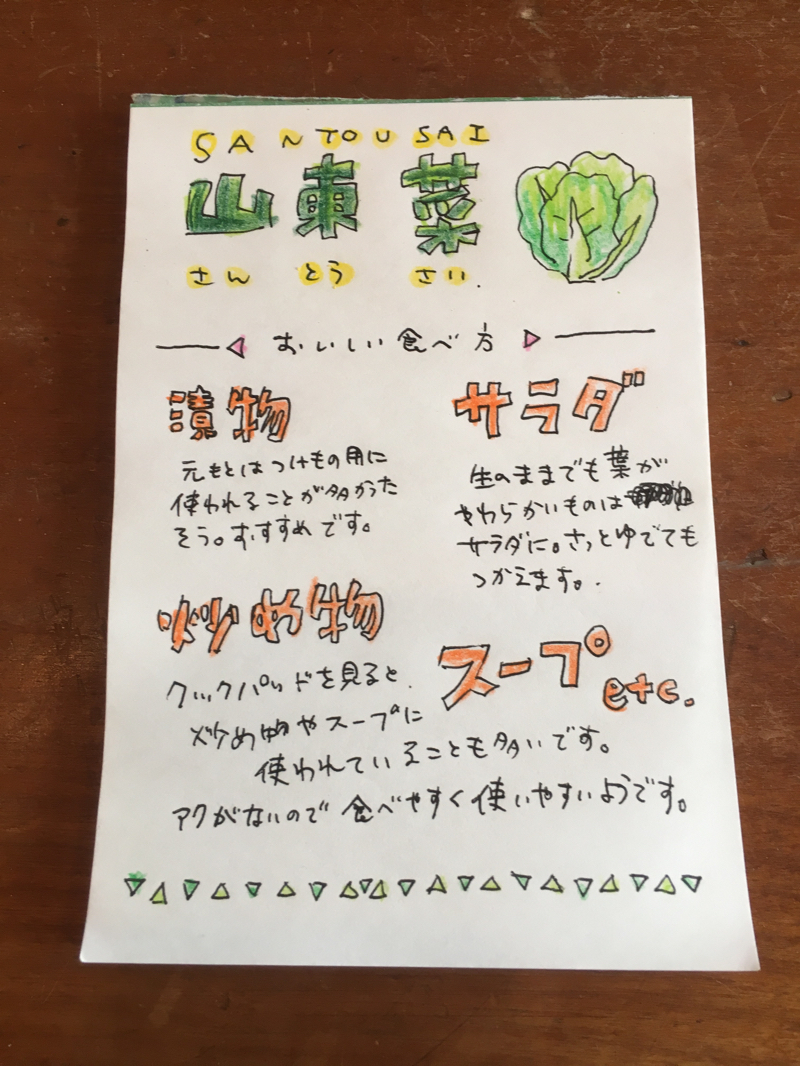 SANTOUSAI
山東菜
さんとうさい.
おいしい食べ方
漬物
元もとはつけもの用に
使われることが多かった
そう。おすすめです。
サラダ
生のままでも葉が
やわらかいものは
サラダに。さっとゆでても
つかえます。
炒め物
スープetc.
クックパッドを見ると
炒め物やスープに
使われていることも多いです。
アクがないので食べやすく使いやすいようです。